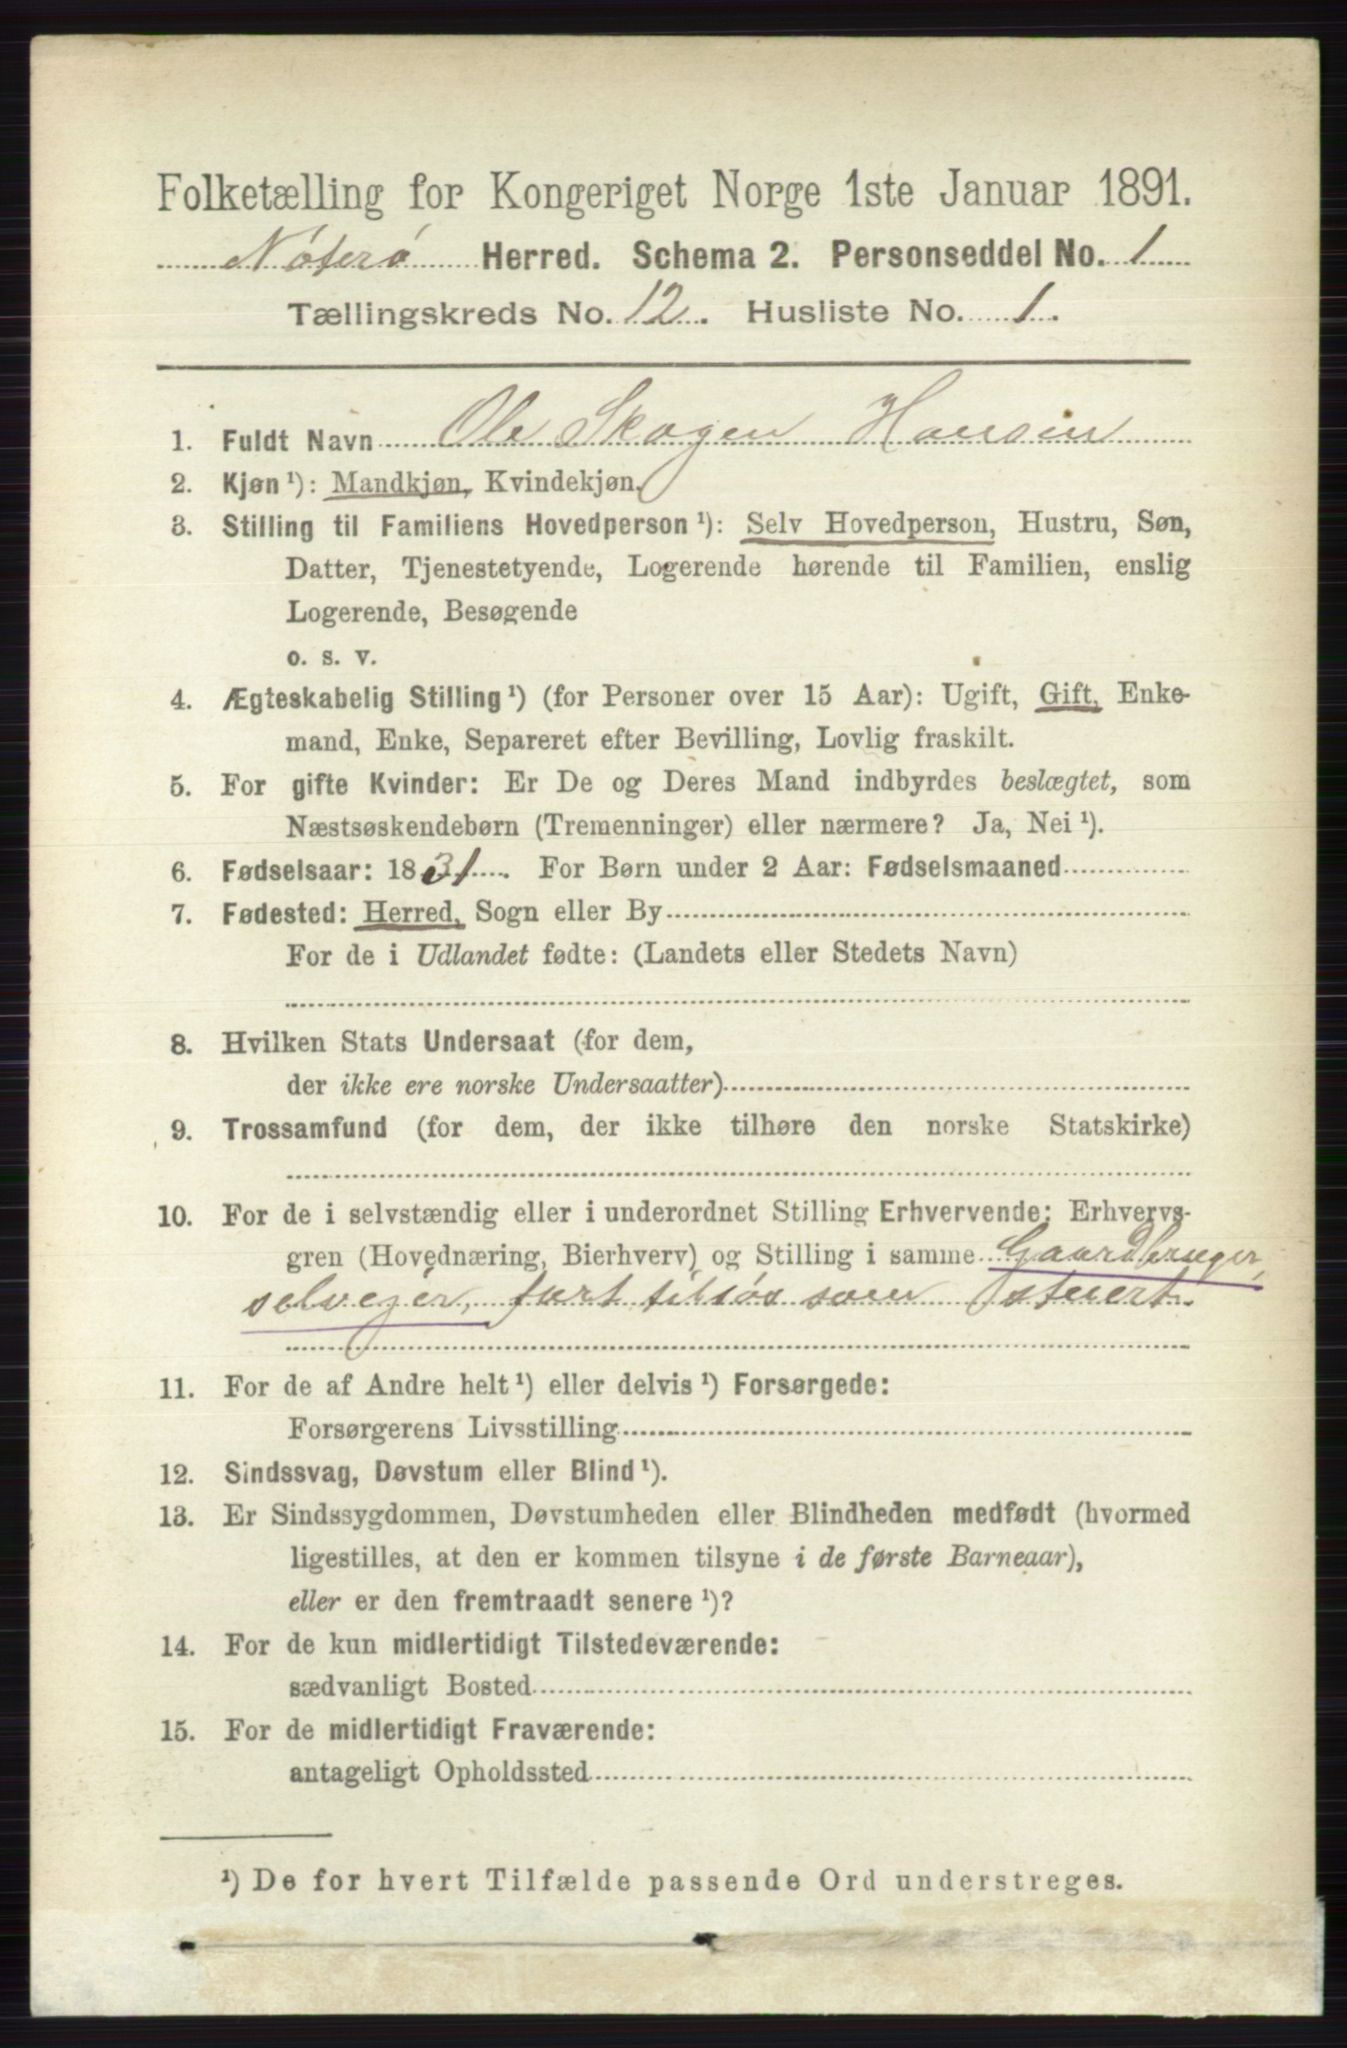 Folketælling for Kongeriget Norge 1ste Januar 1891.
Nøterø Herred. Schema 2. Personseddel No. 1
Tællingskreds No. 12. Husliste No. 1.
1. Fuldt Navn Ole Skogen Hansen
2. Kjøn¹): Mandkjøn, Kvindekjøn.
3. Stilling til Familiens Hovedperson¹): Selv Hovedperson, Hustru, Søn,
Datter, Tjenestetyende, Logerende hørende til Familien, enslig
Logerende, Besøgende
o. s. v.
4. Ægteskabelig Stilling¹) (for Personer over 15 Aar): Ugift, Gift, Enke-
mand, Enke, Separeret efter Bevilling, Lovlig fraskilt.
5. For gifte Kvinder: Er De og Deres Mand indbyrdes beslægtet, som
Næstsøskendebørn (Tremenninger) eller nærmere? Ja, Nei¹).
6. Fødselsaar: 1831. For Børn under 2 Aar: Fødselsmaaned
7. Fødested: Herred, Sogn eller By
For de i Udlandet fødte: (Landets eller Stedets Navn)
8. Hvilken Stats Undersaat (for dem,
der ikke ere norske Undersaatter)
9. Trossamfund (for dem, der ikke tilhøre den norske Statskirke)
10. For de i selvstændig eller i underordnet Stilling Erhvervende: Erhvervs-
gren (Hovednæring, Bierhverv) og Stilling i samme Gaardbruger,
selvejer, fart tilsøs som stuert.
11. For de af Andre helt¹) eller delvis¹) Forsørgede:
Forsørgerens Livsstilling
12. Sindssvag, Døvstum eller Blind¹).
13. Er Sindssygdommen, Døvstumheden eller Blindheden medfødt (hvormed
ligestilles, at den er kommen tilsyne i de første Barneaar),
eller er den fremtraadt senere¹)?
14. For de kun midlertidigt Tilstedeværende:
sædvanligt Bosted
15. For de midlertidigt Fraværende:
antageligt Opholdssted
¹) De for hvert Tilfælde passende Ord understreges.